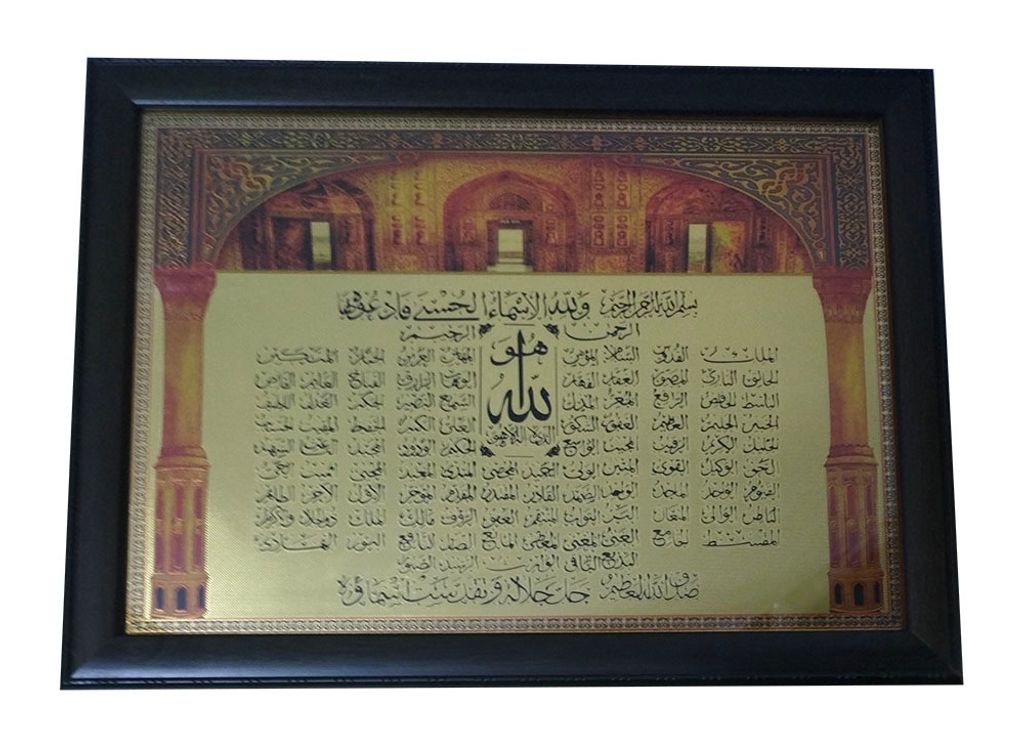 بسم الله الرحمن الرحيم ولله الاسماء الحسنى فادعوه بها
الرحمن الرحيم
هو الله الذي لا اله الا هو
الملك القدوس السلام المؤمن المهيمن العزيز الجبار المتكبر
الخالق البارئ المصور الغفار القهار الوهاب الرزاق الفتاح العليم القابض
الباسط الخافض الرافع المعز المذل السميع البصير الحكم العدل اللطيف
الخبير الحليم العظيم الغفور الشكور العلي الكبير الحفيظ المقيت الحسيب
الجليل الكريم الرقيب المجيب الواسع الحكيم الودود المجيد الباعث الشهيد
الحق الوكيل القوى المتين الولى الحميد المحصى المبدئ المعيد المحيى المميت الحى
القيوم الواجد الماجد الواحد الصمد القادر المقتدر المقدم المؤخر الأول الآخر الظاهر
الباطن الوالى المتعال البر التواب المنتقم العفو الرؤف مالك الملك ذوالجلال والاكرام
المقسط الجامع الغنى المغنى المعطى المانع الضار النافع النور الهادى
البديع الباقى الوارث الرشيد الصبور
صدق الله العظيم جل جلاله وتقدست اسماؤه